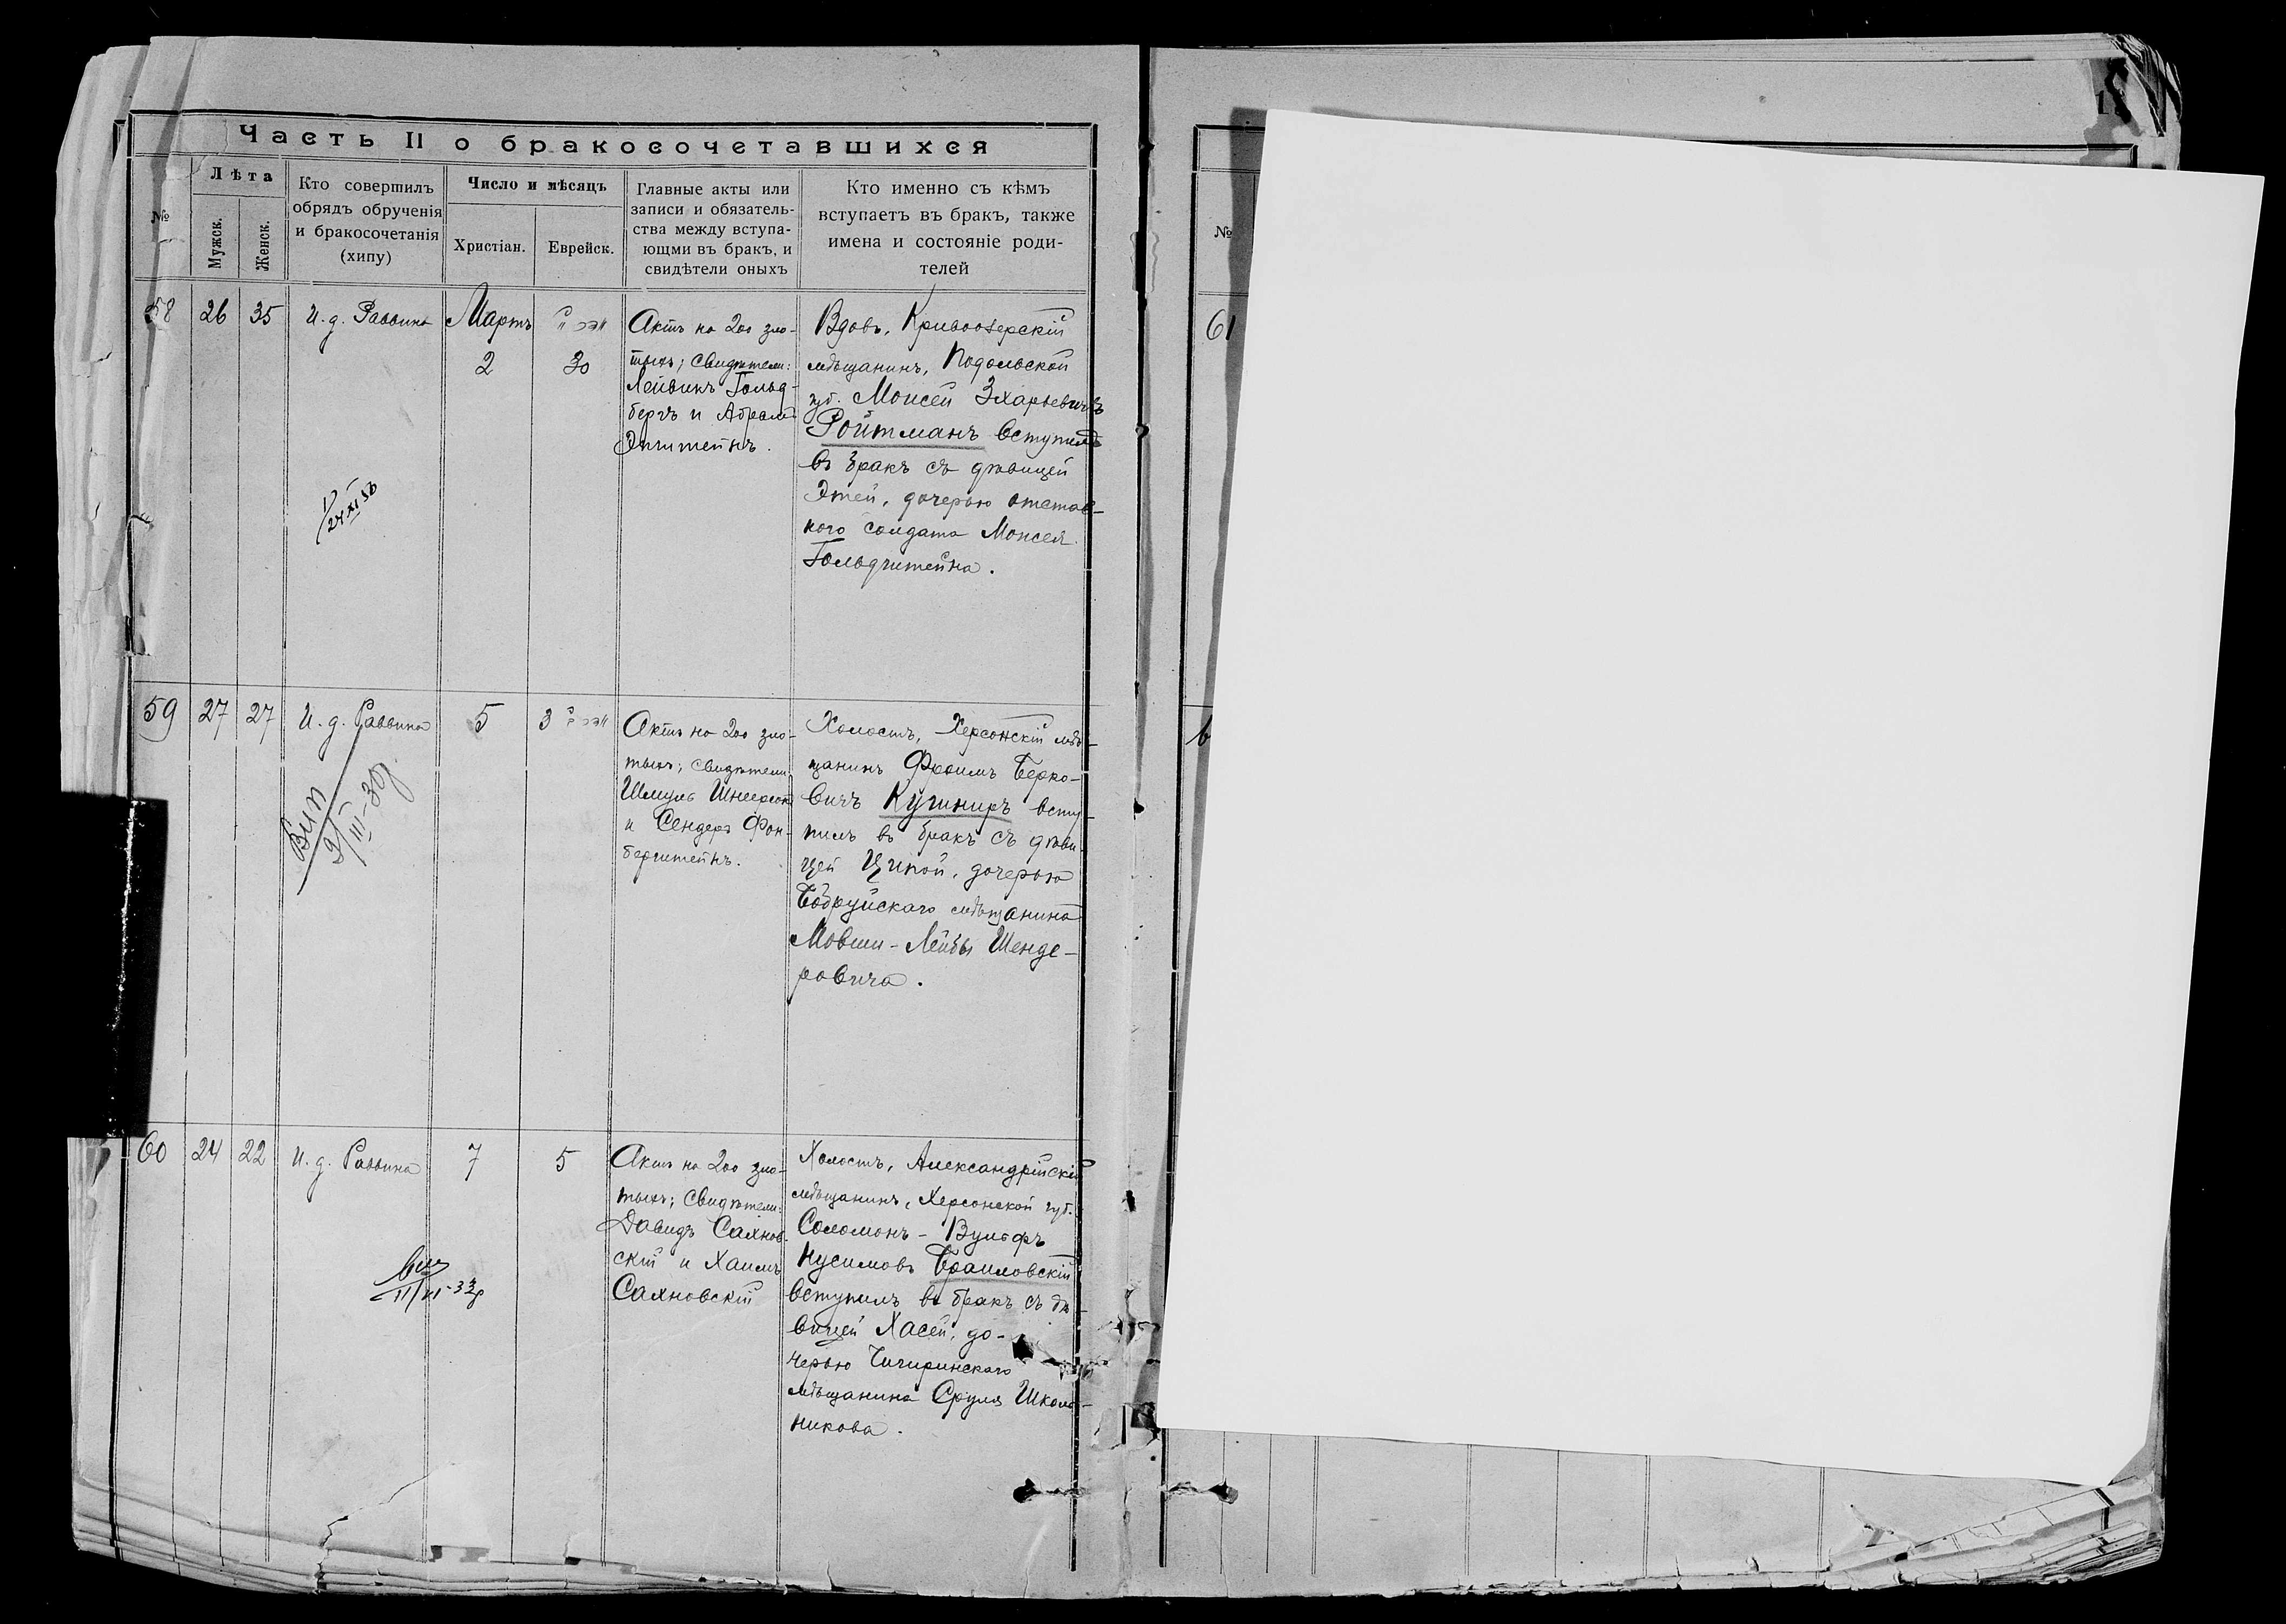 Часть II о бракосочетавшихся
№
Лѣта
Мужск.
Женск.
Кто совершилъ
обрядъ обрученія
и бракосочетанія
(хипу)
Число и мѣсяцъ
Христіан.
Еврейск.
Главные акты или
записи и обязатель-
ства между вступа-
ющми въ бракъ, и
свидѣтели оныхъ
Кто именно съ кѣмъ
вступаетъ въ бракъ, также
имена и состояніе роди-
телей
58
26
35
И. д. Раввина
Мартъ
2
30
Актъ на 200 зло-
тыхъ; свидѣтели:
Лейвикъ Гольд-
бергъ и Абрамъ
Эпштейнъ.
Вдовъ, Кривоозерскій
мѣщанинъ, Подольской
губ. Моисей Эхарьевичъ
Ройтманъ вступилъ
въ бракъ съ дѣвицей
Этей, дочерью отстав-
ного солдата Моисея
Гольдштейна.
59
27
27
И. д. Раввина
5
3
Актъ на 200 зло-
тыхъ; свидѣтели:
Шмуль Шнеерсонъ
и Сендеръ Фон-
берштейнъ.
Холостъ, Херсонскій мѣ-
щанинъ Фроимъ Берко-
вичъ Кушниръ всту-
пилъ въ бракъ съ дѣви-
цей Ципой, дочерью
Бобруйскаго мѣщанина
Мовши-Лейбы Шенде-
ровича.
60
24
22
И. д. Раввина
7
5
Актъ на 200 зло-
тыхъ; свидѣтели:
Давидъ Сахнов-
скій и Хаимъ
Сахновскій
Холостъ, Александрійскій
мѣщанинъ, Херсонской губ.
Соломонъ-Вульфъ
Нусимовъ Браиловскій
вступилъ въ бракъ съ дѣ-
вицей Хасей, до-
черью Чигиринскаго
мѣщанина Сруля Школь-
никова.
№
61